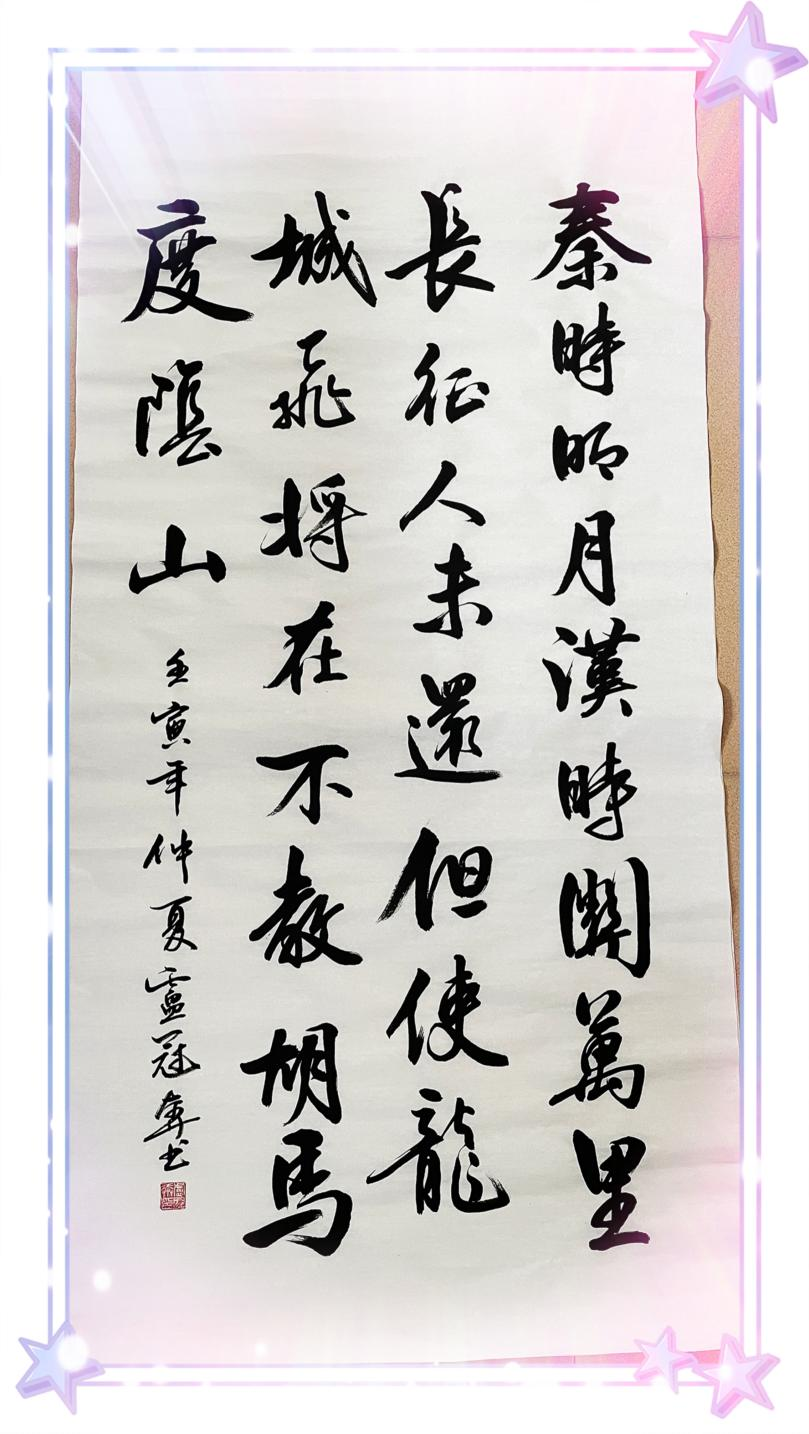 秦時明月漢時關萬里
長征人未還但使龍
城飛將在不教胡馬
度陰山
壬寅年仲夏盧冠群书